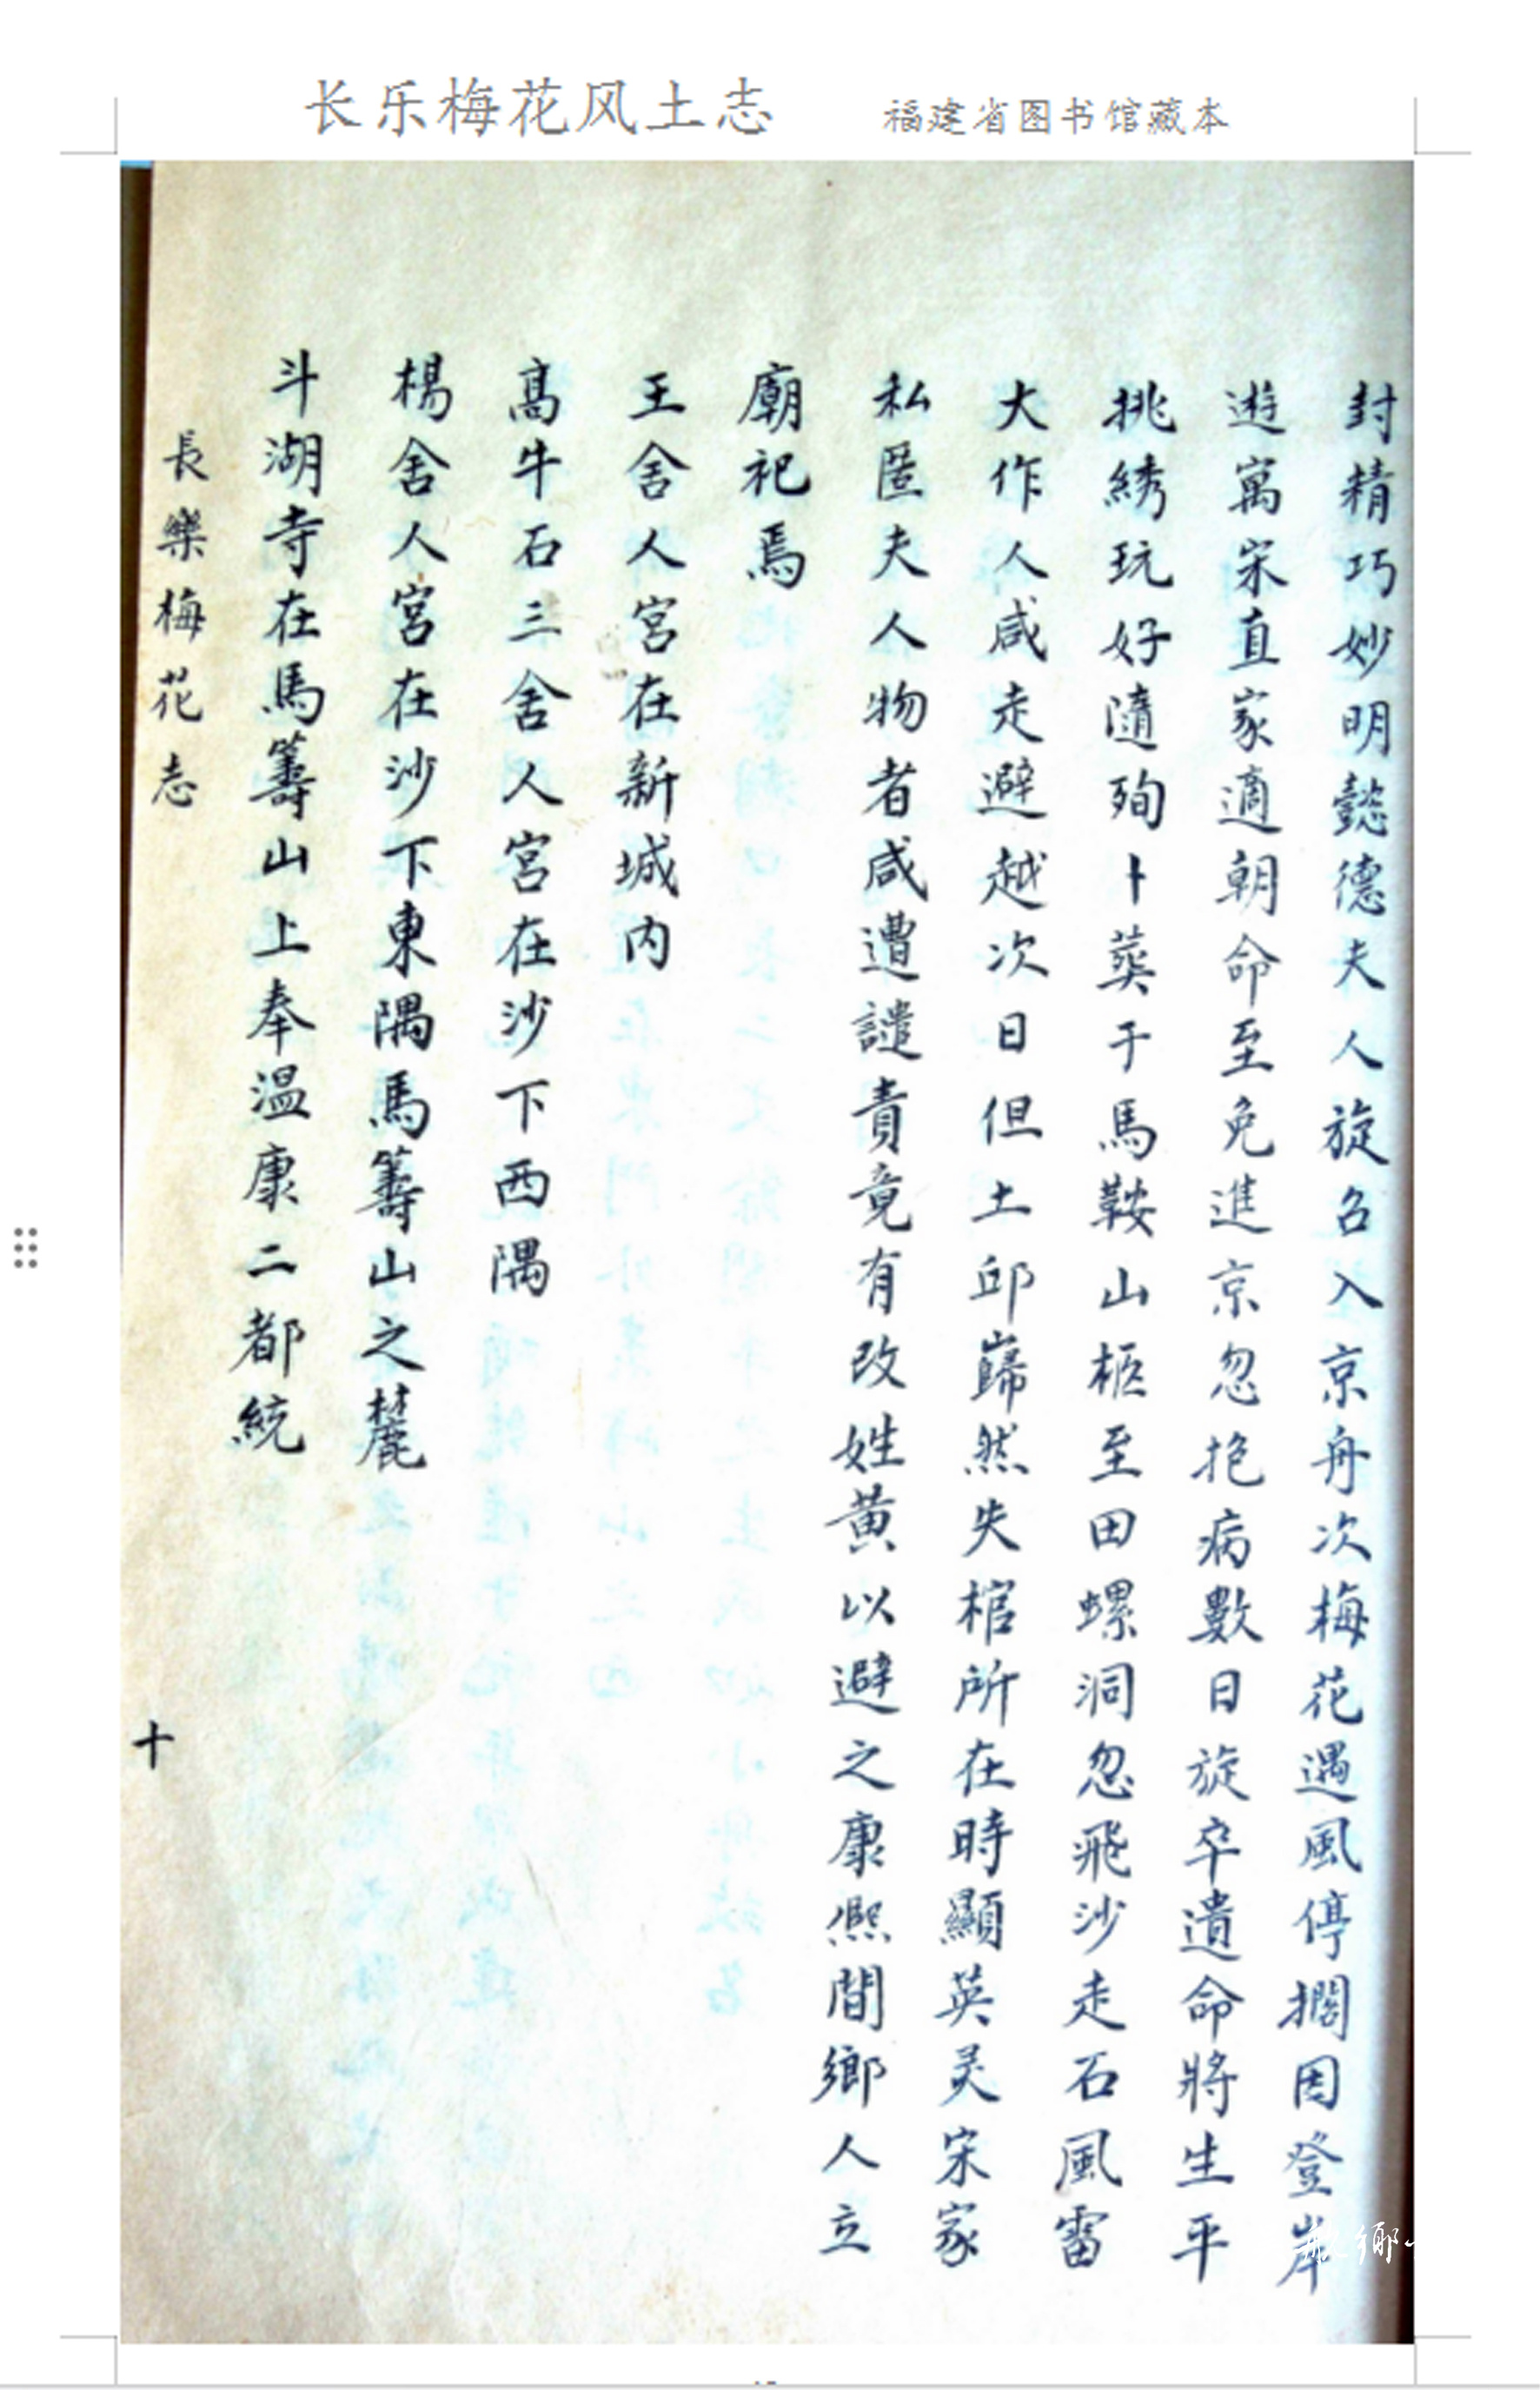 长乐梅花风土志 福建省图书馆藏本
封精巧妙明懿德夫人旋召入京舟次梅花遇風停擱因登岸
遊寓宋直家適朝命至免進京忽抱病數日旋卒遺命將生平
挑綉玩好隨殉卜葬于馬鞍山柩至田螺洞忽飛沙走石風雷
大作人咸走避越次日但土邱巋然失棺所在時顯英灵宋家
私匿夫人物者咸遭譴責竟有改姓黄以避之康熙間鄉人立
廟祀焉
王舍人宫在新城内
高牛石三舍人宫在沙下西隅
楊舍人宫在沙下東隅馬籌山之麓
斗湖寺在馬籌山上奉温康二都統
長樂梅花志
十